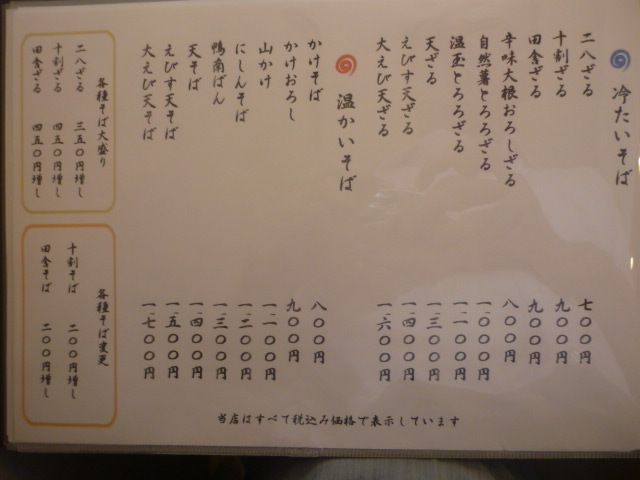 冷たいそば
二八ざる 七〇〇円
十割ざる 九〇〇円
田舎ざる 九〇〇円
辛味大根おろしざる 八〇〇円
自然薯とろろざる 一、〇〇〇円
温玉とろろざる 一、一〇〇円
天ざる 一、三〇〇円
えびす天ざる 一、四〇〇円
大えび天ざる 一、六〇〇円
温かいそば
かけそば 八〇〇円
かけおろし 九〇〇円
山かけ 一、一〇〇円
にしんそば 一、二〇〇円
鴨南ばん 一、三〇〇円
天そば 一、四〇〇円
えびす天そば 一、五〇〇円
大えび天そば 一、七〇〇円
各種そば大盛り
二八ざる 三五〇円増し
十割ざる 四五〇円増し
田舎ざる 四五〇円増し
各種そば変更
十割そば 二〇〇円増し
田舎そば 二〇〇円増し
当店はすべて税込み価格で表示しています